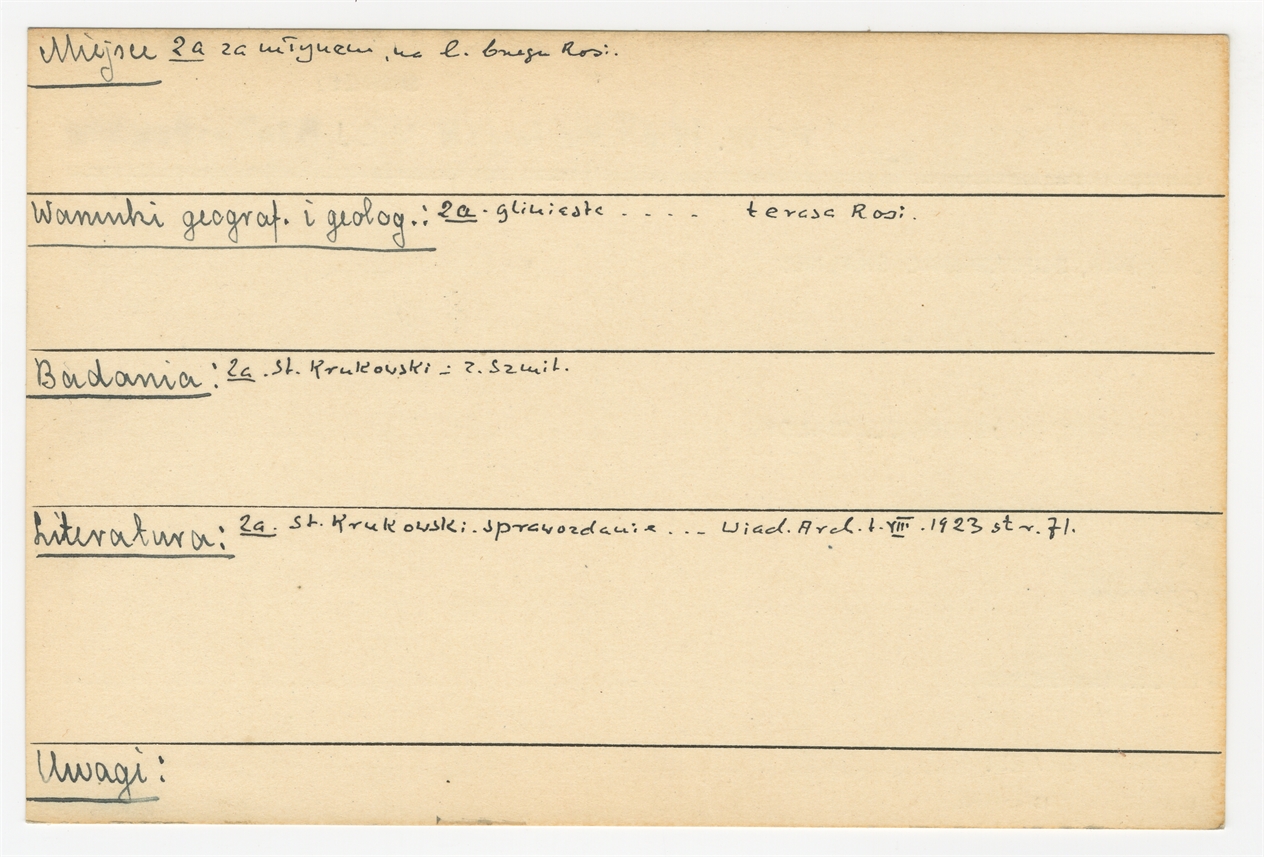 Miejsce 2a za młynem, na l. brzegu Rosi.
Warunki geograf. i geolog.: 2a. gliniasta .... terasa Rosi.
Badania: 2a. St. Krukowski i Z. Szmit.
Literatura: 2a. St. Krukowski. Sprawozdanie ... Wiad. Arch. t. VIII. 1923 str. 71.
Uwagi: